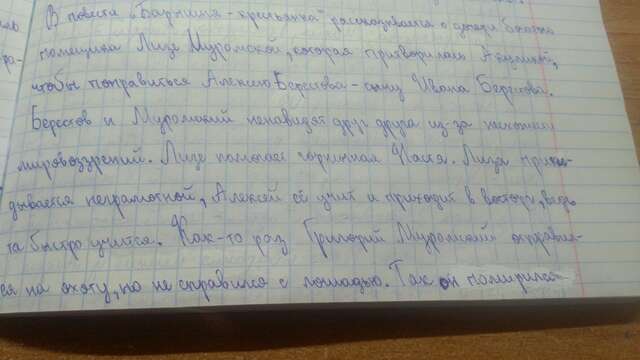 В повести „Барышня-крестьянка" рассказывается о дочери богатого
помещика Лизе Муромской, которая притворилась Акулиной,
чтобы понравиться Алексею Берестова - сыну Ивана Берестова.
Берестов и Муромский ненавидят друг друга из-за
мировоззрений. Лизе помогает горничная Настя. Лиза прики-
дывается неграмотной, Алексей её учит и приходит в восторг, ведь
та быстро учится. Как-то раз Григорий Муромский отправил-
ся на охоту, но не справился с лошадью. Так он помирился